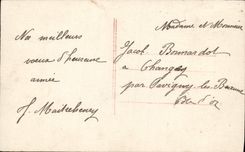 Nos meilleurs
voeux d'heureuse
année
Madame et Monsieur
Jacob Bonnardot
à Changey
par Savigny les Beaune
Côte d'or